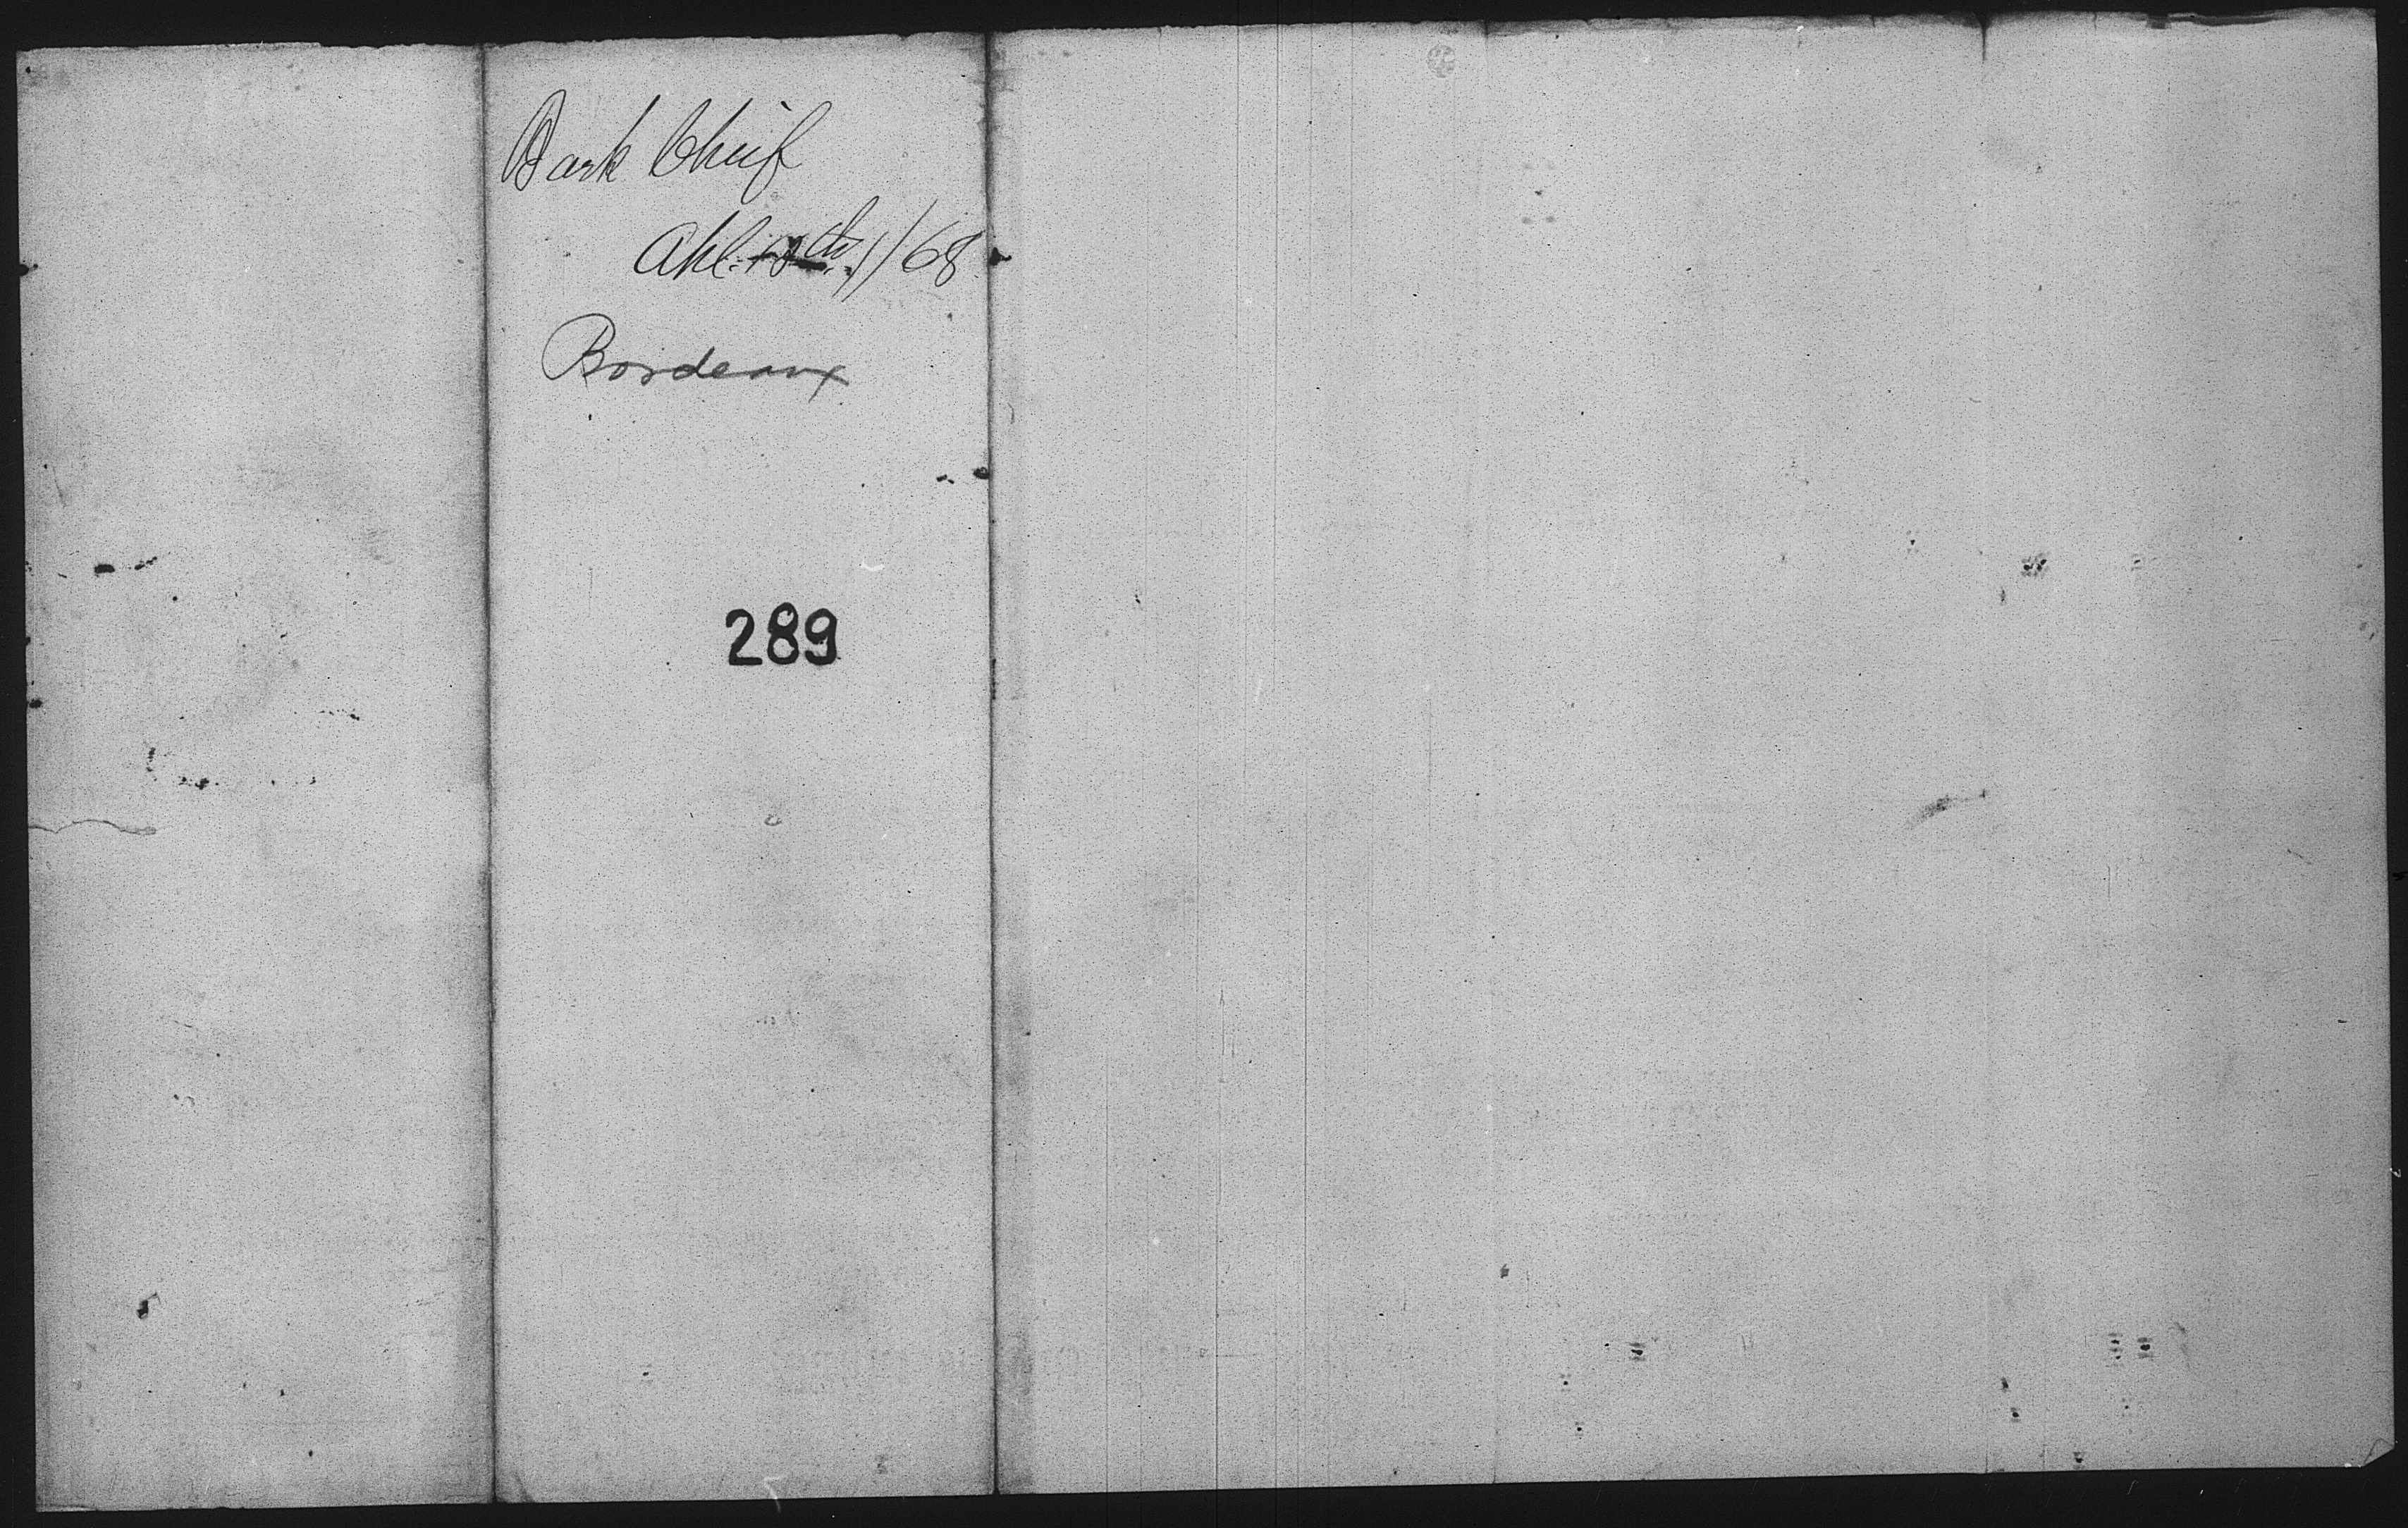 Bark Chief
Apl. 18th / 68
Bordeaux
289